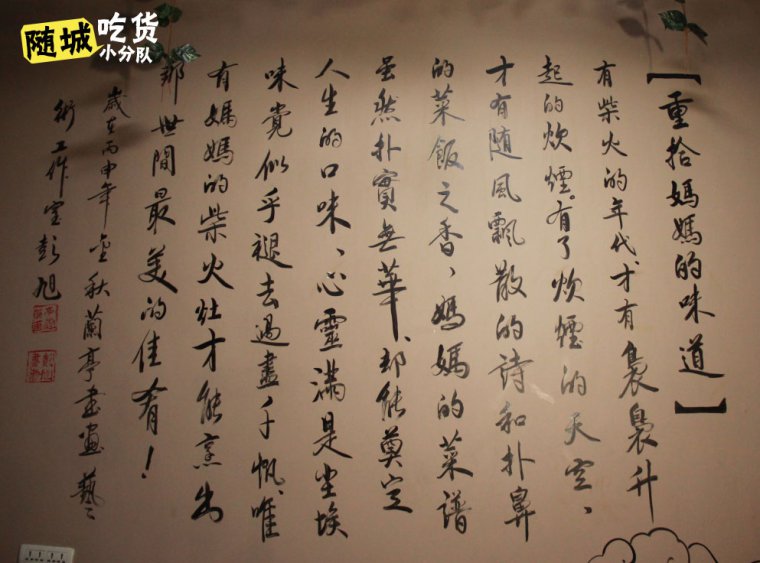 随城吃货
小分队
【重拾媽媽的味道】
有柴火的年代、才有裊裊升
起的炊煙。有了炊煙的天空、
才有随風飄散的诗和扑鼻
的菜飯之香、媽媽的菜譜
虽然扑實無華、却能奠定
人生的口味、心靈满是尘埃
味觉似乎褪去過盡千帆、唯
有媽媽的柴火灶才能烹出
那世間最美的佳肴！
歲在丙申年金秋蘭亭書画藝
術工作室彭旭